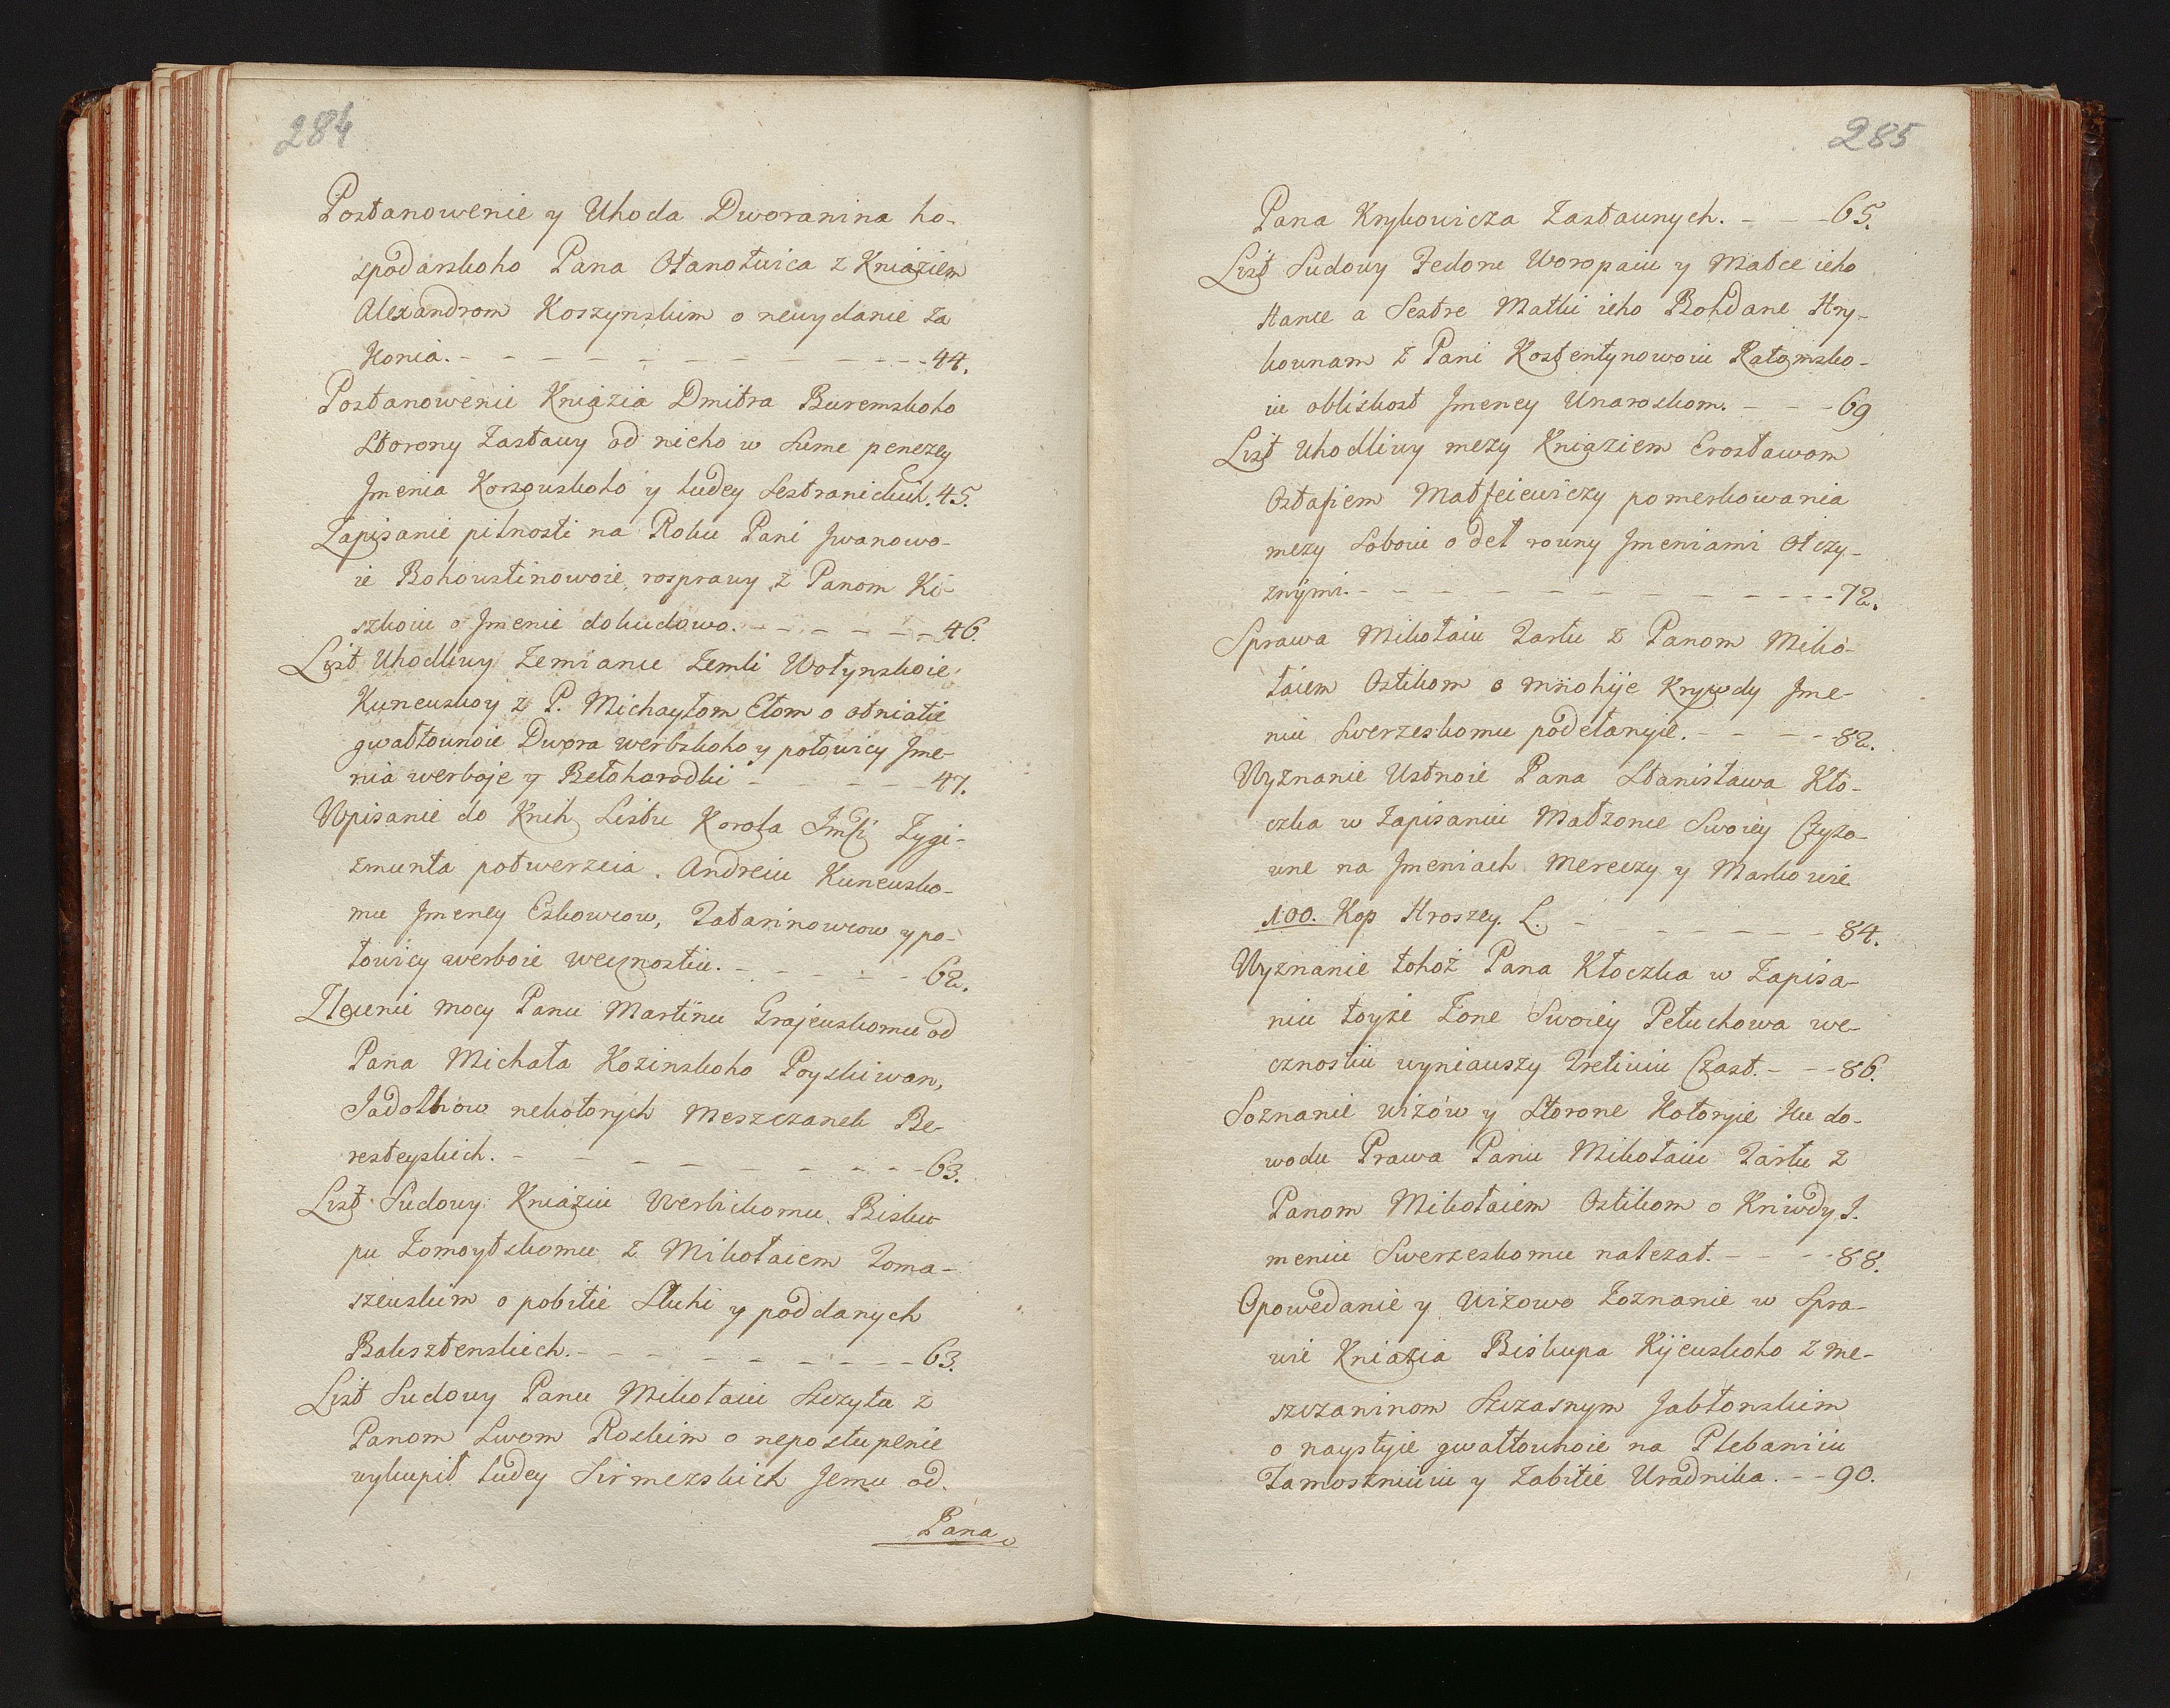 284
Postanowenie y Uhoda Dworanina ho-
spodarskoho Pana Otanotwica z Kniaziem
Alexandrom Koszynskim o newydanie za
Konia. - - - - - - - - - - 44.
Postanowenie Kniązia Dmitra Buremskoho
storony Zastawy od nieho w sume penezey
Jmenia Korsouskoho y ludey Sestranickich. 45.
Zapisanie pilnosti na Roku Pani Jwanowo-
ie Bohoustinowoie rosprawy z Panom Ki-
szkoiu o Jmenie dokudowo. - - - - - - 46.
List Uhodliwy Zemianu Zemli Wołynskoie
Kuneuskoy z P. Michayłom Ełom o otniatie
gwałtounoie Dwora werbskoho y połowicy Jme-
nia werboje y Bełoharodki - - - - 47.
Wpisanie do Knih Listu Korola Jmśi Zygi-
zmunta potwerzeia Andreiu Kuneusko-
mu Jmeney Eskowcow, Tatarinowcow y po-
łowicy werboie wecznostiu. - - - - - 62.
Zlecenie mocy Panu Martinu Grajeuskomu od
Pana Michała Kozinskoho Poyskiwan,
Sadolkow nekotorych Meszczanek Be-
resteyskich. - - - - - - - - 63.
List Sudowy Kniaziu Werbickomu Bisku-
pu Żomoytskomu z Mikołaiem Toma-
szeuskim o pobitie Sluhi y poddanych
Baksztenskich. - - - - - - - 63.
List Sudowy Panu Mikołaiu Szczytu z
Panom Lwom Roskim o nepostuplenie
wykupit ludey Sirmezskich Jemu od
Pana
285
Pana Krykowicza Zastaunych. - - - 65.
List Sudowy Fedoru Woropaiu y Matce ieho
Hance a Sestre Matki ieho Bohdane Hry-
kounam z Pani Kostentynowoiu Ratomsko-
iu obliskost Jmeney Unaroskom. - - - 69
List Uhodliwy mezy Kniaziem Erosławom
Ostafiem Matfeiewiczy pomeskowania
mezy Soboiu o deł rouny Jmeniami Otczy-
znymi. - - - - - - - - - - 72.
Sprawa Mikołaiu Tarłu z Panom Miko-
łaiem Ostikom o mnohije Krywdy Jme-
niu Swerzeskomu podełanyie. - - - - 82.
Wyznanie Ustnoie Pana Stanisława Kło-
czka w Zapisaniu Małżonce Swoiey Czyżo-
wne na Jmeniach Mereczy y Markowie
100. Kop Hroszey. L. - - - - - - 84.
Wyznanie tohoż Pana Kłoczka w Zapisa-
niu toyże Żone Swoiey Pełuchowa we-
cznostiu wyniauszy Tretiuiu Czast. - - - 86.
Soznanie wiżów y storone Kotoryie Ku do-
wodu Prawa Panu Mikołaiu Tarłu z
Panom Mikołaiem Ostikom o Kriwdy J.
meniu Swerzeskomu należat. - - - - 88.
Opowedanie y Wiżowo Zoznanie w Spra-
wie Kniazia Biskupa Kijeuskoho z me-
szczaninom Szczasnym Jabłonskim
o naystyie gwałtounoie na Plebaniiu
Zamostnuiu y Zabitie Uradnika. - - 90.